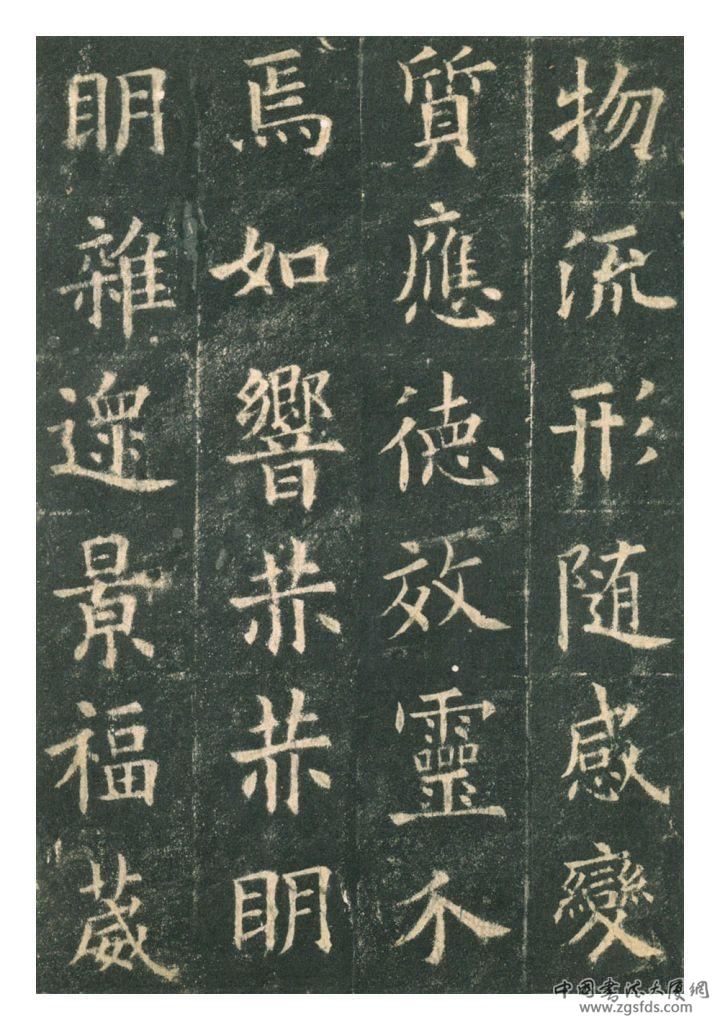 物流形随感變
質應德效靈介
焉如響赫赫明
明雜遝景福葳
中国书法大厦網
www.zgsfds.com